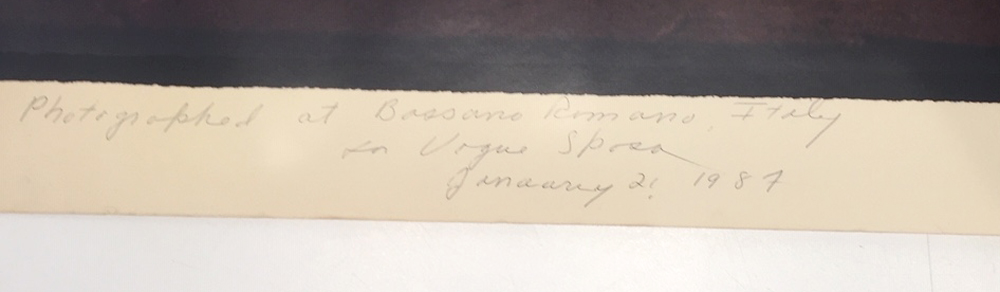 Photographed at Bassano Romano, Italy
for Vogue Sposa
January 21 1987